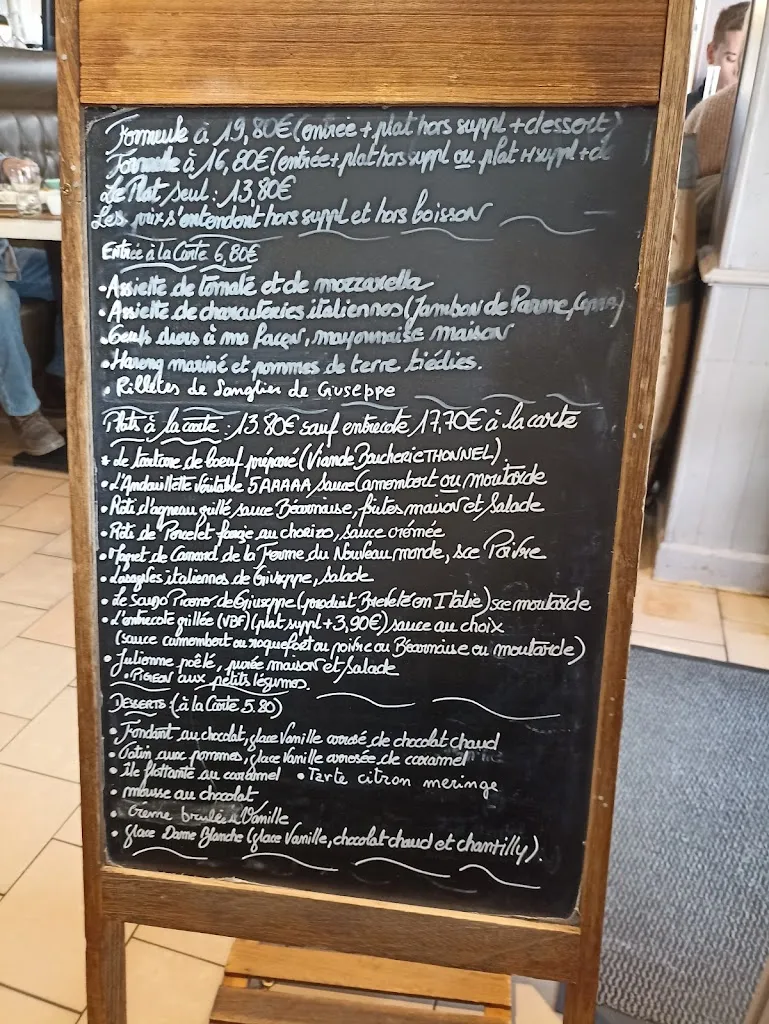 Formule à 19,80€ (entrée + plat hors suppl + dessert)
Formule à 16,80€ (entrée + plat hors suppl ou plat H suppl + d
Le Plat seul : 13,80€
Les prix s'entendent hors suppl et hors boisson
Entrée à la Carte 6,80€
• Assiette de tomate et de mozzarella
• Assiette de charcuteries italiennes (Jambon de Parme,
• Oeufs durs à ma façon, mayonnaise maison
• Hareng mariné et pommes de terre tiédies.
• Rilletes de Sanglier de Giuseppe
Plats à la carte : 13.80€ sauf entrecote 17,70€ à la carte
• Le tartare de boeuf préparé (Viande Boucherie THONNEL).
• L'Andouillette Véritable 5AAAAA sauce Camembert ou moutarde
• Rôti d'agneau grillé sauce Béarnaise, frites maison et Salade
• Rôti de Porcelet farçie au chorizo, sauce crémée
• Magret de Canard de la Ferme du Nouveau monde, sce Poivre
• Lasagnes italiennes de Giuseppe, Salade
• Le de Giuseppe (produit Breveté en Italie) sce moutarde
• L'entrecote grillée (VBF) (plat suppl + 3,90€) sauce au choix
(sauce camembert ou roquefort ou poivre ou Béarnaise ou moutarde)
• Julienne poêlé, purée maison et Salade
• Pigeon aux petits légumes.
Desserts (à la Carte 5.80)
• Fondant au chocolat, glace Vanille arrosé de chocolat chaud
• Tatin aux pommes, glace Vanille arrosée de caramel
• île flottante au caramel • Tarte citron meringe
• mousse au chocolat
• Crème brulée Vanille
• glace Dame Blanche (glace Vanille, chocolat chaud et chantilly).